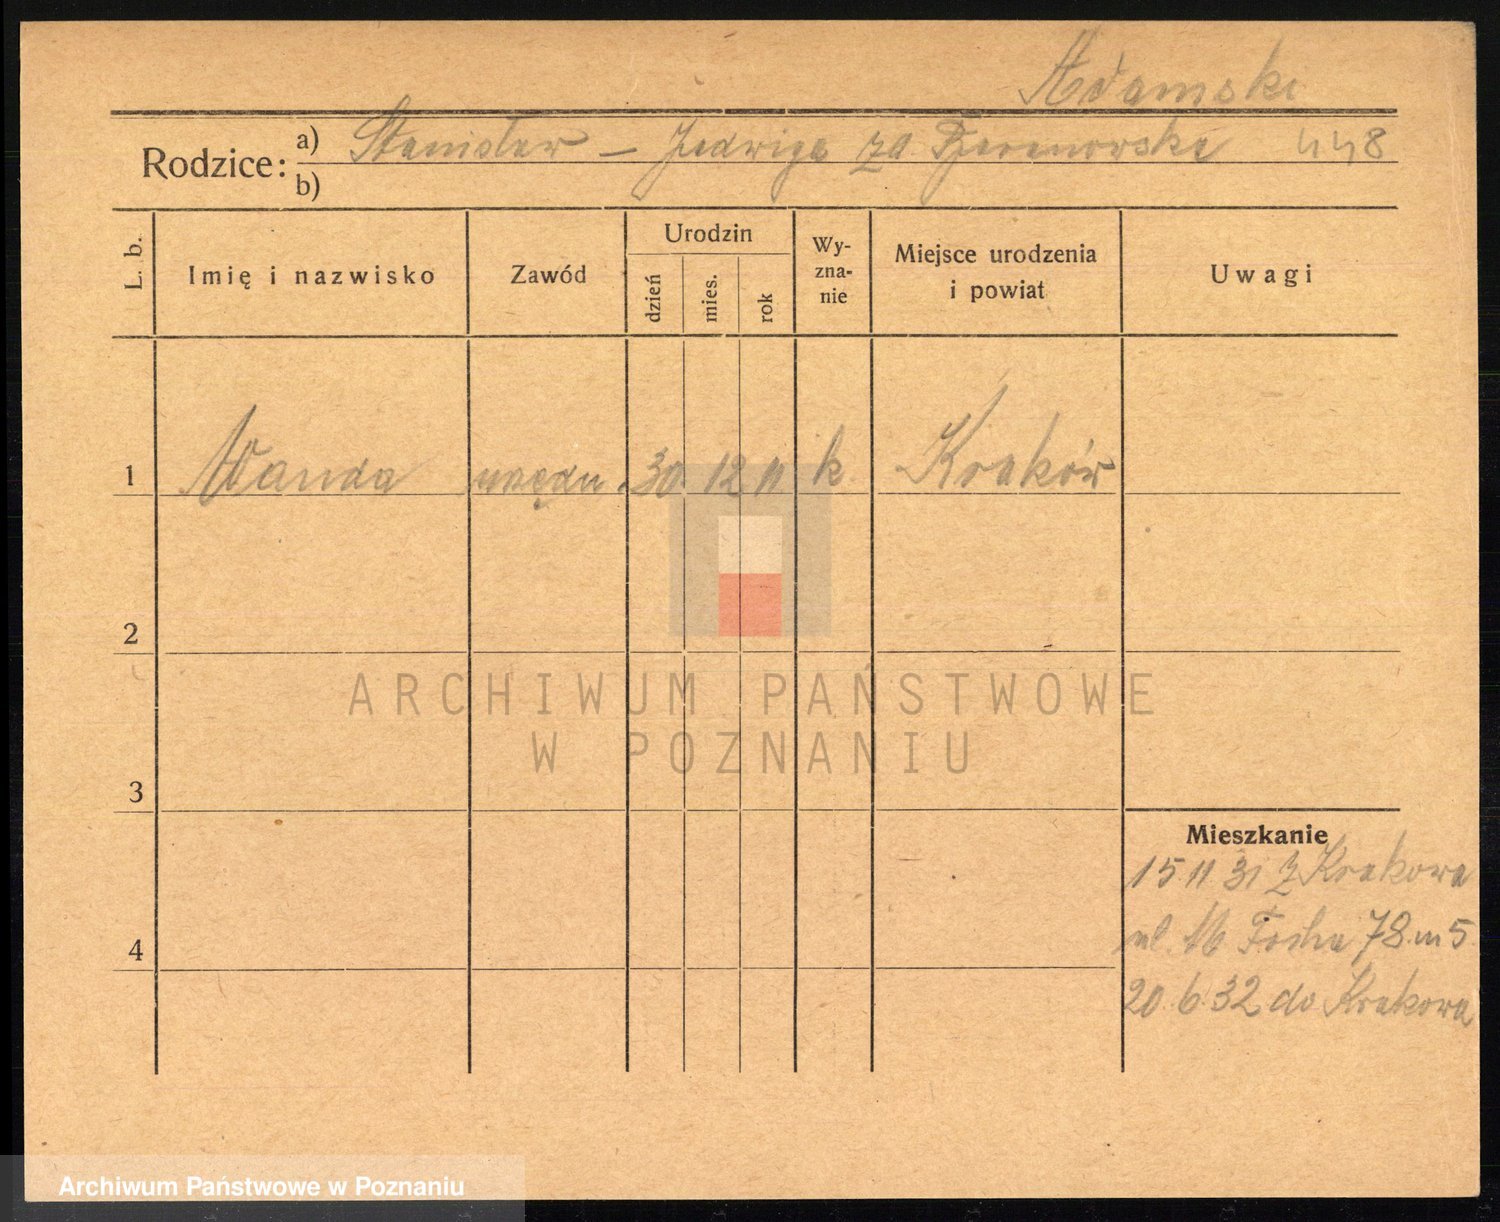 Adamski
Rodzice: a) Stanisław – Jadwiga za 448
b)
L. b.
Imię i nazwisko
Zawód
Urodzin
dzień
mies.
rok
Wy-
zna-
nie
Miejsce urodzenia
i powiat
Uwagi
1 Wanda urzędn. 30 12 11 k Kraków
2
3
4
Mieszkanie
15 11 31 z Krakowa
ul. M Focha 78 m 5
20.6.32 do Krakowa
ARCHIWUM PAŃSTWOWE
W POZNANIU
Archiwum Państwowe w Poznaniu